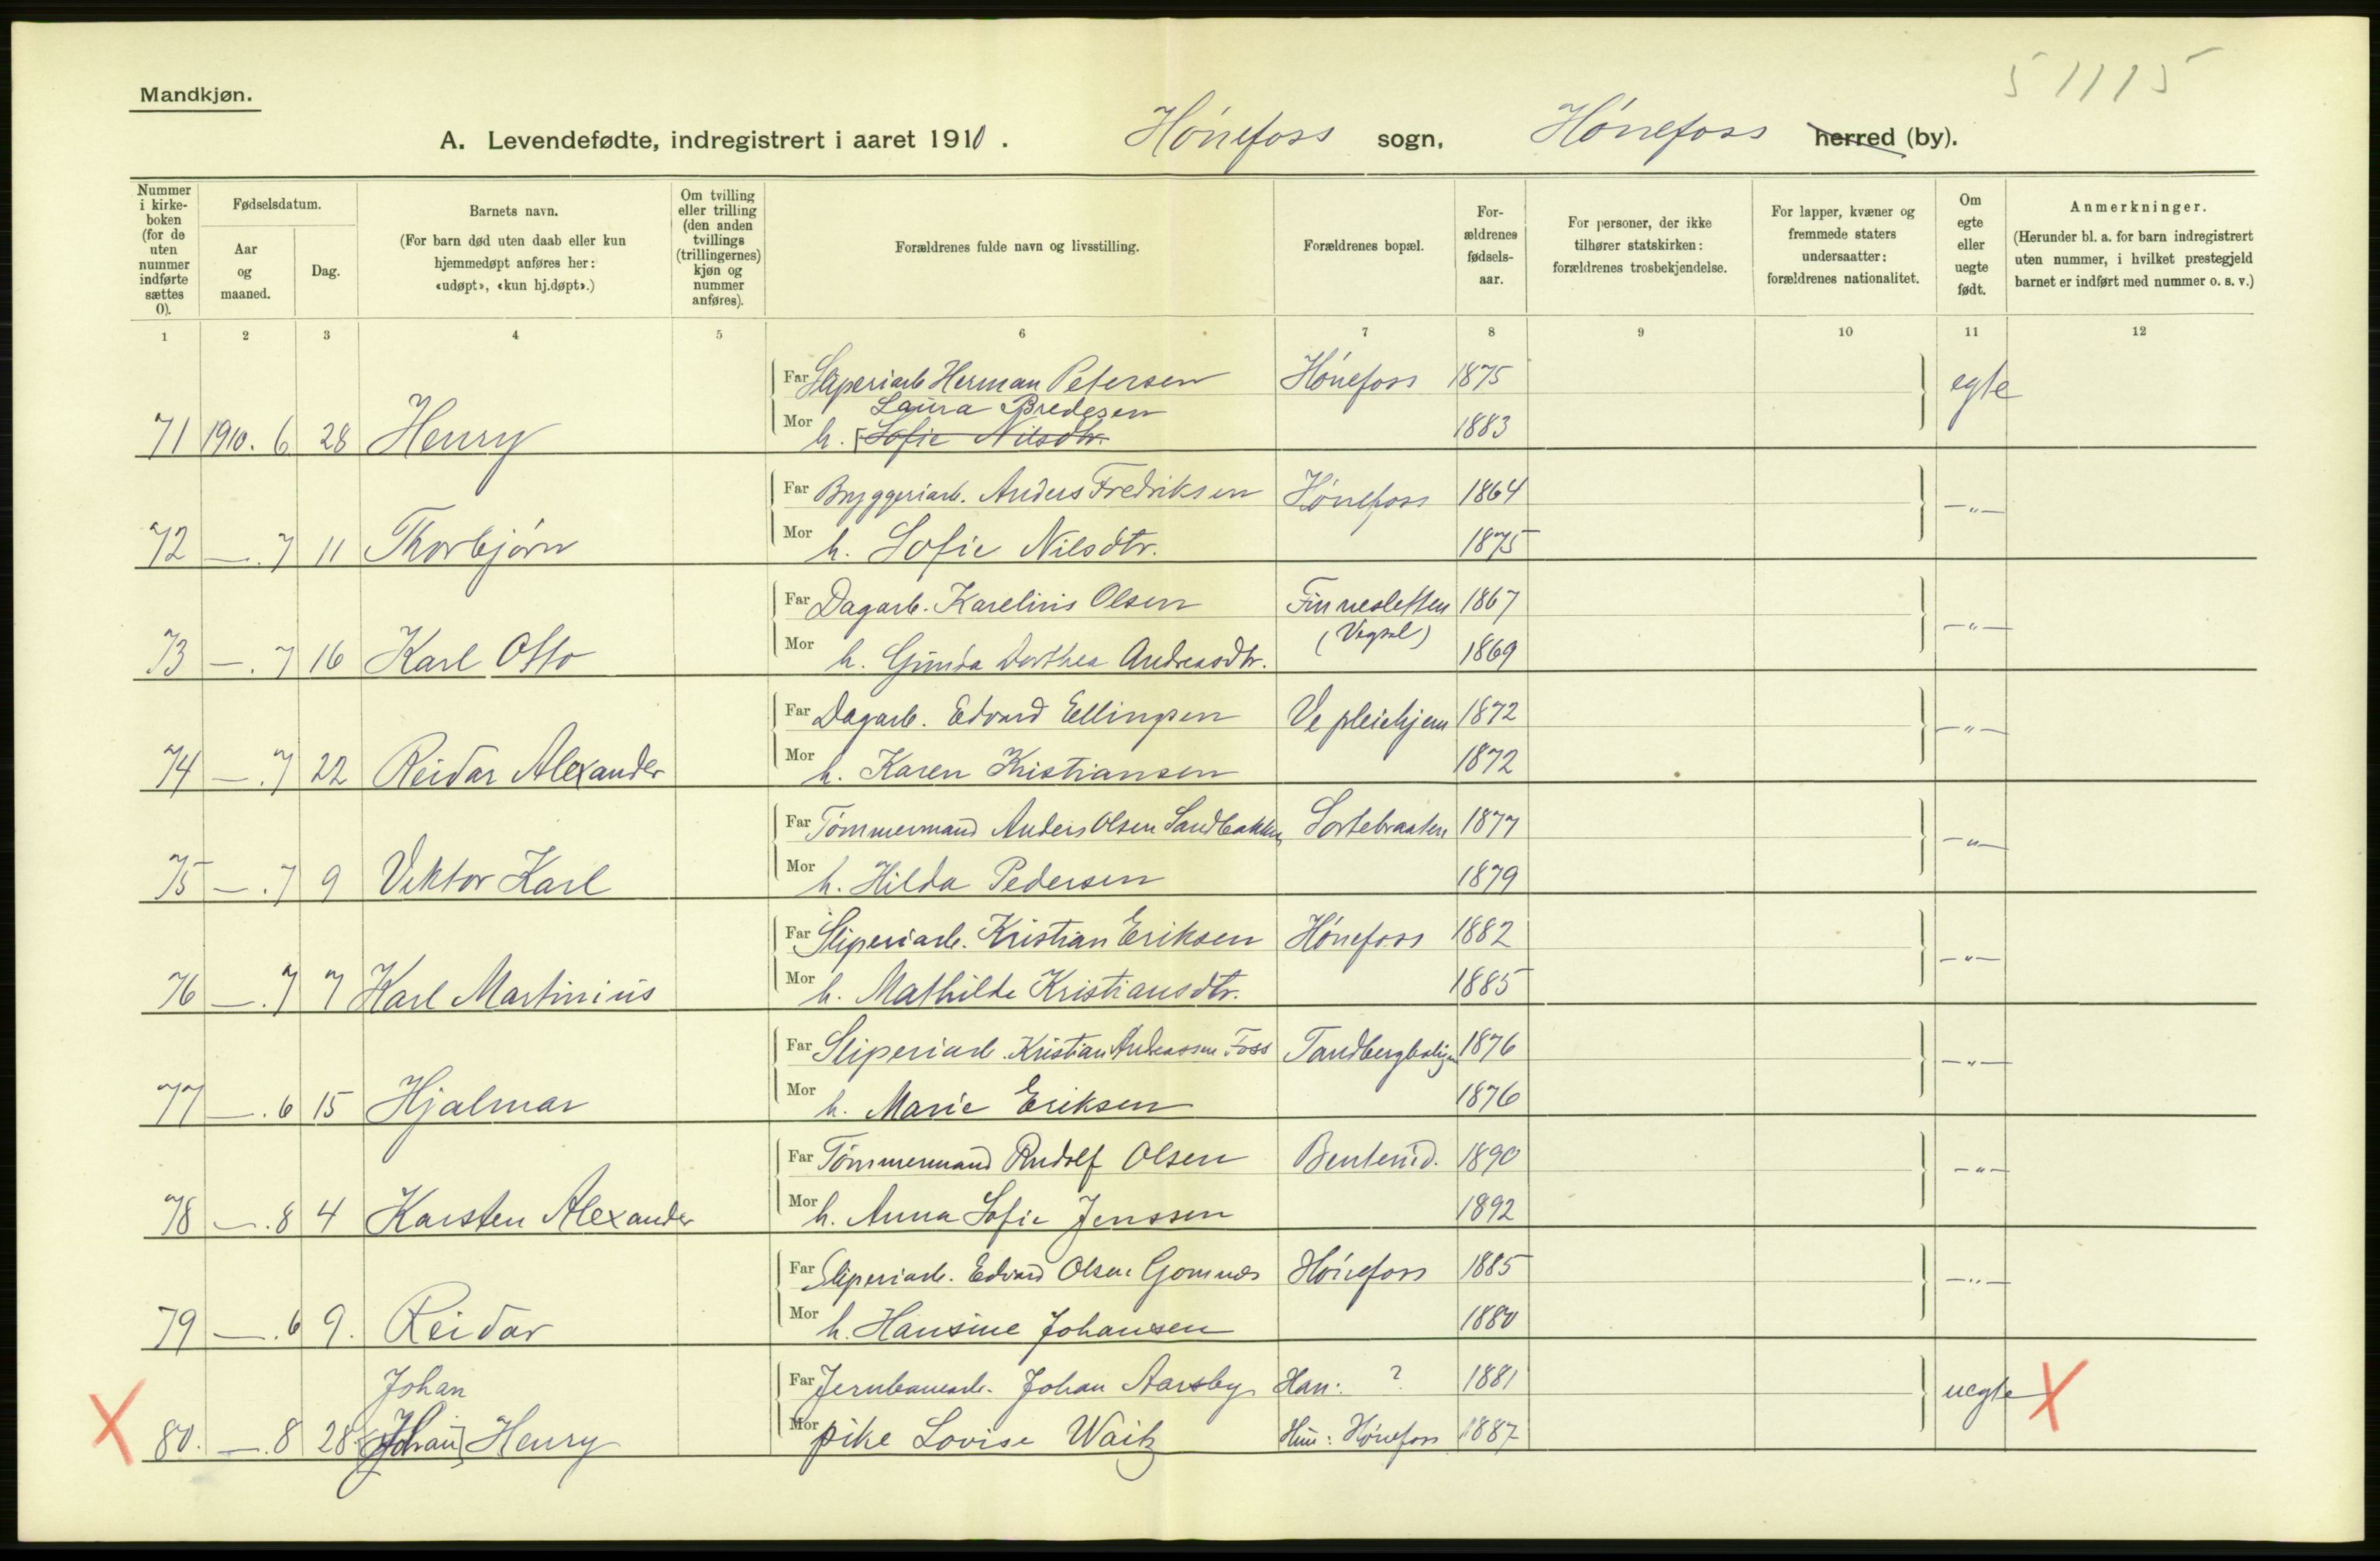 51115
Mandkjøn.
A. Levendefødte, indregistrert i aaret 1910. Hónefoss sogn, Hónefoss herred (by).
Nummer i kirke-boken (for de uten nummer indførte sættes 0).
Fødselsdatum.
Aar og maaned.
Dag.
Barnets navn.
(For barn død uten daab eller kun hjemmedøpt anføres her: «udøpt», «kun hj.døpt».)
Om tvilling eller trilling (den anden tvillings (trillingernes) kjøn og nummer anføres).
Forældrenes fulde navn og livsstilling.
Forældrenes bopæl.
For-ældrenes fødsels-aar.
For personer, der ikke tilhører statskirken: forældrenes trosbekjendelse.
For lapper, kvæner og fremmede staters undersaatter: forældrenes nationalitet.
Om egte eller uegte født.
Anmerkninger.
(Herunder bl. a. for barn indregistrert uten nummer, i hvilket prestegjeld barnet er indført med nummer o. s. v.)
1 2 3 4 5 6 7 8 9 10 11 12
Far Sliperiarb Herman Petersen Hónefoss 1875 egte
Laura Bredesen
71 1910. 6 28 Henry Mor h. [Sofie Nilsdtr. 1883
Far Bryggeriarb. Anders Fredriksen Hónefoss 1864 -"-
72 —. 7 11 Thorbjórn Mor h. Sofie Nilsdtr. 1875
Far Dagarb. Karelius Olsen Finnesletten 1867 -"-
(Vegsel)
73 —. 7 16 Karl Otto Mor h. Gunda Dorthea Andreasdtr. 1869
Far Dagarb. Edvard Ellingsen Ve pleiehjem 1872 -"-
74 —. 7 22 Reidar Alexander Mor h. Karen Kristiansen 1872
Far Tómmermand Anders Olsen Sandbakken Sortebraaten 1877 -"-
75 —. 7 9 Viktor Karl Mor h. Hilda Pedersen 1879
Far Sliperiarb. Kristian Eriksen Hónefoss 1882 -"-
76 —. 7 7 Karl Martinius Mor h. Mathilde Kristiansdtr. 1885
Far Sliperiarb. Kristian Andreassen Foss Tandbergbolig 1876 -"-
77 —. 6 15 Hjalmar Mor h. Marie Eriksen 1876
Far Tómmermand Rudolf Olsen Benterud. 1890 -"-
78 —. 8 4 Karsten Alexander Mor h. Anna Sofie Jenssen 1892
Far Sliperiarb. Edvard Olsen Gomnæs Hónefoss 1885 -"-
79 —. 6 9. Reidar Mor h. Hansine Johansen 1880
Johan Far Jernbanearb. Johan Aarsby Han: ? 1881 uegte X
X 80. —. 8 28 [Johan] Henry Mor pike Lovise Waitz Hun: Hónefoss 1887